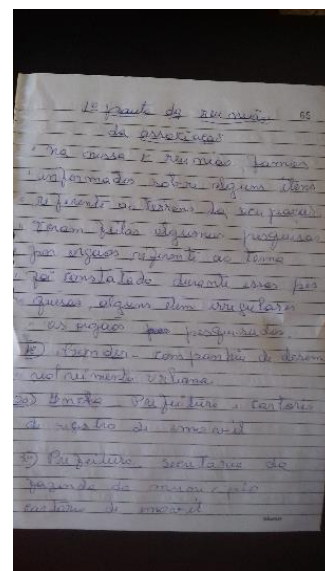 1º pauta da reunião 65
da associação
na nossa 1º reunião, famos
informados sobre alguns itens
referente ao terreno da ocupação
Foram feitas algumas pesquisas
por orgãos referente ao tema
foi constatado durante essas pes
quisas, alguns item irregulares
os orgãos pesquisados
1º) companhia de desem
volvimento urbana
2º) Prefeitura e cartorio
de registro de emovel
3º) Prefeitura secretaria da
fazenda do
cartorio de emovel